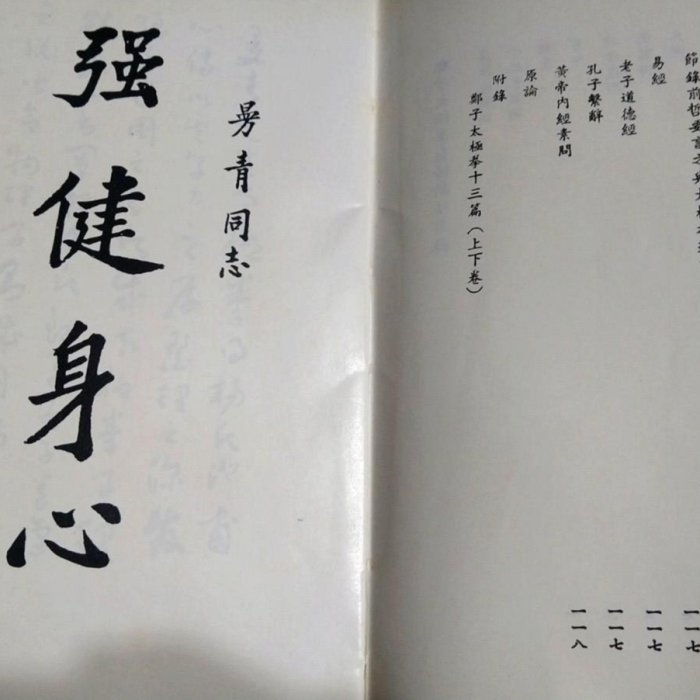 節錄前哲要言之與太
易經
老子道德經
孔子繫辭
黃帝內經素問
原論
附錄
鄭子太極拳十三篇（上下卷）
一一七
一一七
一一七
一一八
曼青同志
强健身心